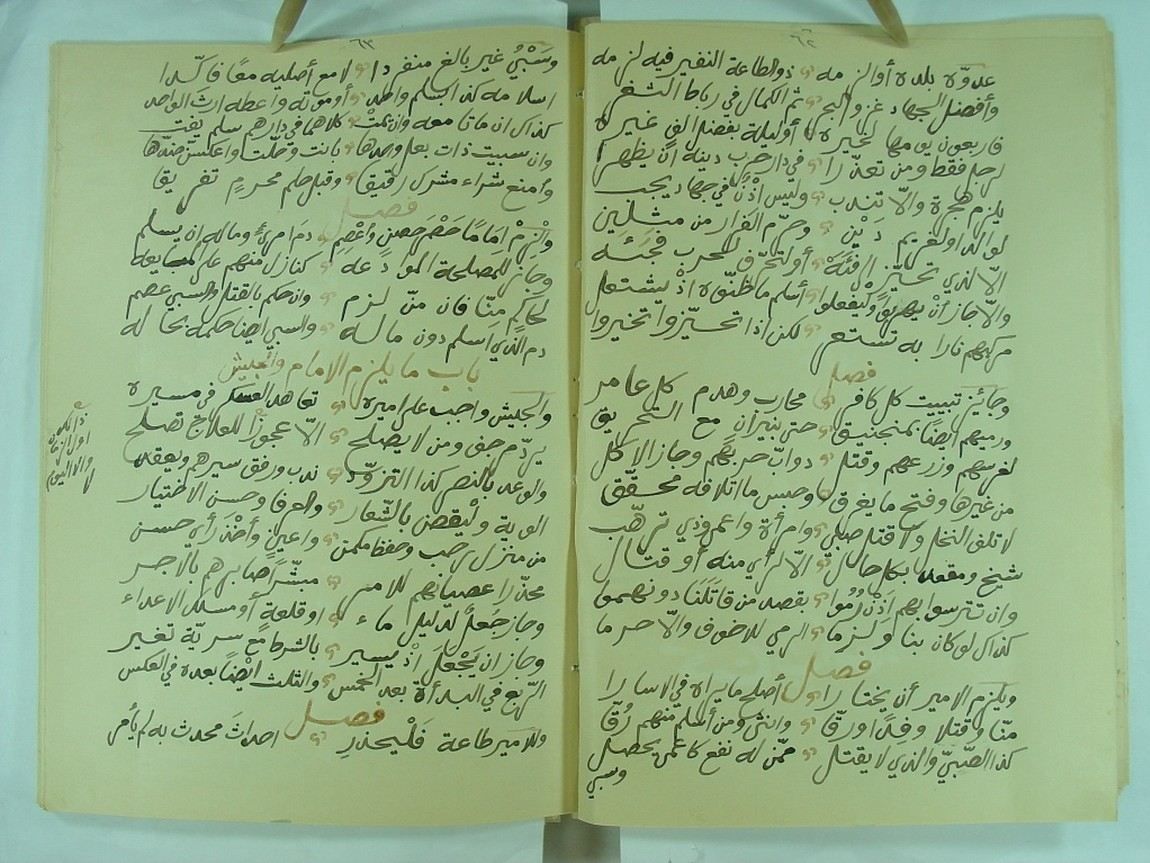 ٦٢
عدوّه بلده أو الزمه ذو الطاعة النفير فيه لزمه
وأفضل الجهاد غزو البحر ثم الكمال في رباط الثغر
فاربعون يومها لخيره أو ليلة بفضل الف غيره
لرجل فقط ومن تعذّرا في دار حرب دينه ان يظهرا
يلزم هجرة والّا تندب وليس اذن في جهاد يجب
لوالد او لغريم دَيْن وحرّم الفرار من مثلين
الّا لذي تحيّز الى فئة أو لتحرّف لحرب فجئه
والّا جاز أنْ وليفعلوا أسلم ما ظنّوه اذْ يشتعل
مركبهم نارا به تستعر لكن اذا تحيّزوا تخيروا
فصل
وجائز تبييت كل كافر محارب وهدم كل عامر
ورميهم ايضًا بمنجنيق حتى بنيران مع التحريق
لغرسهم وزرعهم وقتل دوابّ حربهم وجاز الاكل
من غيرها وفتح ما يغرق وحبس ما اتلافه محقّق
لا تلف النخل ولا قتل صبي وامرأة واعمى وذي ترهّب
شيخ ومقعد بكل حال الّا لرأي منه أو قتال
وان تترسوا بهم اذن رُموا بقصد من قاتَلَنَا دونهمو
كذاك لو كان بنا ولزما الرمي للخوف والّا حرما
فصل
ويلزم الامير أن يختارا أصلح ما يراه في الاسارا
منّا وقتلا وفدًا ورقّا وانثى ومن أسلم منهم رُقّا
كذا الصّبيّ والذي لا يقتل ممّن له نفع كاعمى يحصل
وسبي
٦٣
وسَبْيُ غير بالغ منفردا لا مع أصليه معًا فاكّدا
اسلامه كذا اسلم واحد أو موته واعطه ارث الواحد
كذاك ان ماتا معه وان يمتْ كلاهما في دارهم سلم يفت
وان سبيت ذات بعل وحدها بانت وحلّت واعكسن ضدّها
وامنع شراء مشرك رقيقا وقبل حلم محرمٍ تفريقا
فصل
والْزِمْ اِمَامًا حَصْرَ حِصْنٍ واعْصِمِ دم امرئ وماله ان يسلم
وجائز للمصلحة الموادعة كنازل منهم على مبايعه
لحاكم منّا فان منّ لزم وان حكم بالقتل والسبي عصم
دم الذي اسلم دون ماله والسبي ايضا حكمه بحاله
باب ما يلزم الامام والجيش
والجيش واجب على اميره تعاهد العسكر في مسيره
يردّ من جفى ومن لا يصلح الّا عجوزًا للعلاج تصلح
والوعد بالنصر كذا التزوّد ندب ورفق سيرهم ويعقد
الوية وليقض بالشّعار والعرفا وحسن الاختيار
من منزل رحب وحفظ مكمن واعينٍ واخْذ رأي حسن
محذّرا عصيانهم للامر مبشّرًا صابرهم بالاجر
وجاز جَعلٌ لدليل ماء او قلعة أو مسلك الاعداء
وجاز ان يَجْعَلَ اذْ يسير بالشرط مع سريّة تغير
الرّبع في البدأة بعد الخمس والثلث ايضًا بعده في العكس
فصل
وللامير طاعة فَلْيحذرِ احداثَ محدث به لم يأمر